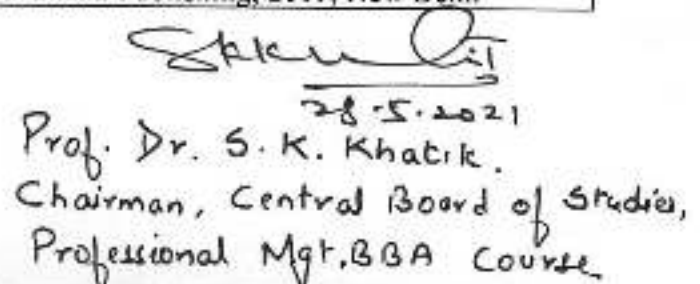 28.5.2021
Prof. Dr. S. K. Khatik.
Chairman, Central Board of Studies,
Professional Mgt.BBA Course